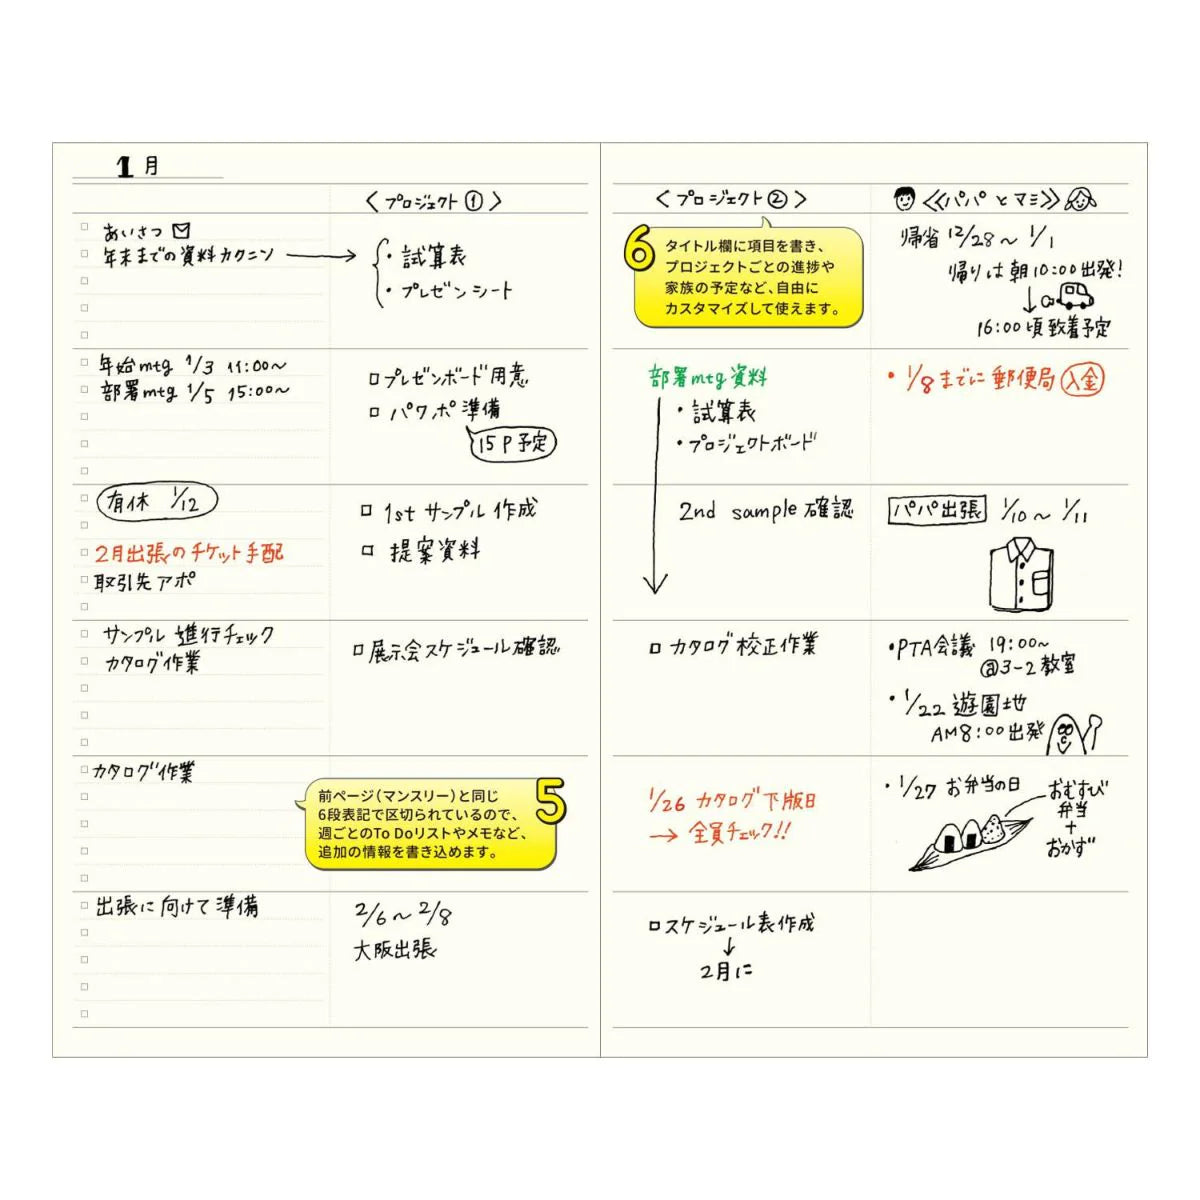 1月
あいさつ
年末までの資料カクニン
年始mtg 1/3 11:00～
部署mtg 1/5 15:00～
有休 1/12
2月出張のチケット手配
取引先アポ
サンプル進行チェック
カタログ作業
カタログ作業
出張に向けて準備
〈プロジェクト①〉
・試算表
・プレゼンシート
□プレゼンボード用意
□パワポ準備
15P予定
□1stサンプル作成
□提案資料
□展示会スケジュール確認
5
前ページ(マンスリー)と同じ
6段表記で区切られているので、
週ごとのTo Doリストやメモなど、
追加の情報を書き込めます。
2/6～2/8
大阪出張
〈プロジェクト②〉
6
タイトル欄に項目を書き、
プロジェクトごとの進捗や
家族の予定など、自由に
カスタマイズして使えます。
部署mtg資料
・試算表
・プロジェクトボード
2nd sample確認
□カタログ校正作業
1/26 カタログ下版日
→全員チェック!!
□スケジュール表作成
↓
2月に
《パパとマミ》
帰省 12/28～1/1
帰りは朝10:00出発!
16:00頃到着予定
・1/8までに郵便局入金
パパ出張 1/10～1/11
・PTA会議 19:00～
@3-2教室
・1/22 遊園地
AM8:00出発
・1/27 お弁当の日
おむすび
弁当
+
おかず